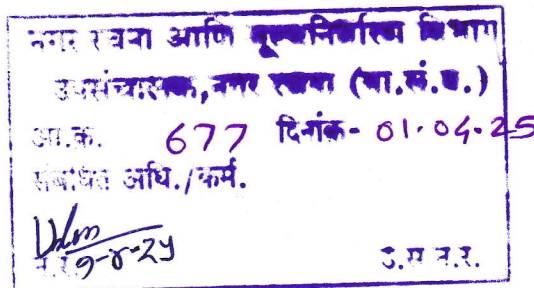 नगर रचना आणि मूल्यनिर्धारण विभाग
उपसंचालक, नगर रचना (ना.सं.घ.)
आ.क्र. 677 दिनांक- 01.04.25
संबंधित अधि./कर्म.
१-४-२५
न.र. उ.स न.र.